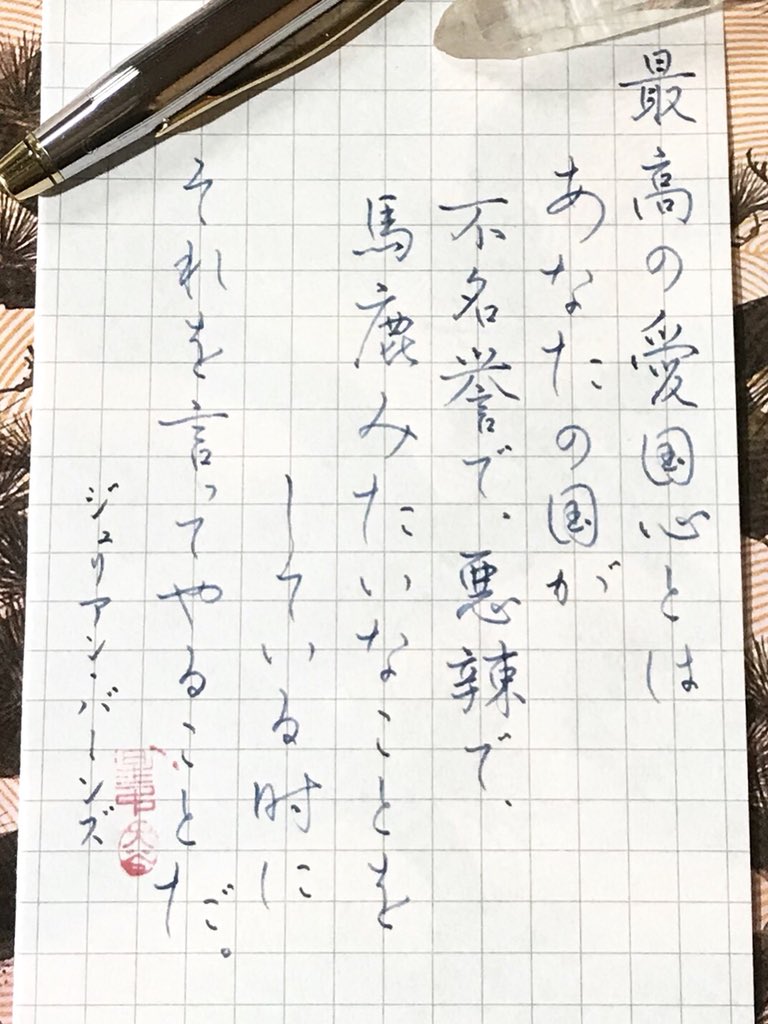 最高の愛国心とは
あなたの国が
不名誉で、悪辣で、
馬鹿みたいなことを
している時に
それを言ってやることだ。
ジュリアン・バーンズ